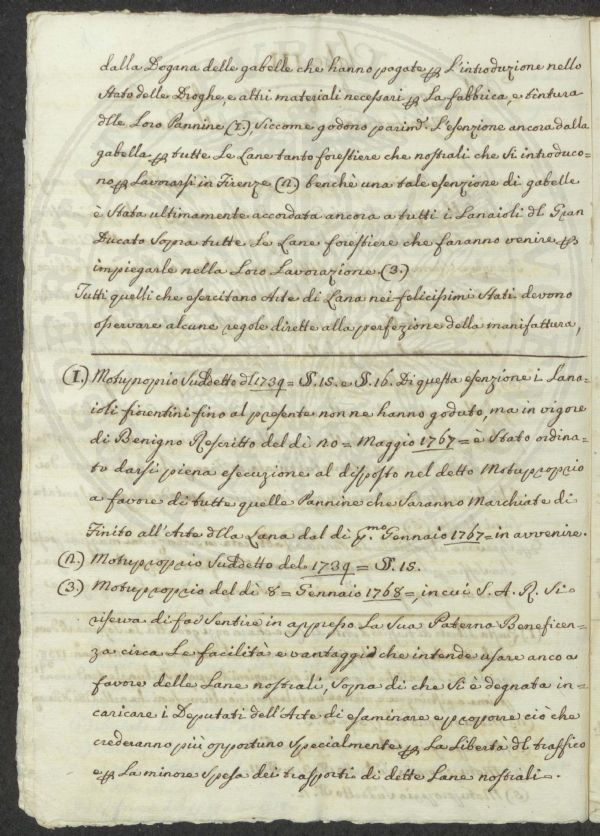 dalla Dogana delle gabelle che hanno pagate p L'introduzione nello
Stato delle Droghe, e altri materiali necessari p La fabbrica, e tintura
dlle Loro Pannine (1.) Siccome godono parim.te L'esenzione ancora dalla
gabella p tutte Le Lane tanto forestiere che nostrali che Si introduco=
no p Lavorarsi in Firenze (2) benchè una tale esenzione di gabelle
è Stata ultimamente accordata ancora a tutti i Lanaioli dl Gran
Ducato Sopra tutte Le Lane forestiere che faranno venire p
impiegarle nella Loro Lavorazione (3.)
Tutti quelli che esercitano Arte di Lana nei felicissimi Stati devono
osservare alcune regole dirette alla perfezione della manifattura,
(1.) Motuproprio Suddetto dl 1739 = §. 15. e §. 16. Di questa esenzione i Lana=
ioli fiorentini fino al presente non ne hanno goduto, ma in vigore
di Benigno Rescritto del dì 20 = Maggio 1767 = è Stato ordina=
to darsi piena esecuzione al disposto nel detto Motuproprio
a favore di tutte quelle Pannine che Saranno Marchiate di
Finito all'Arte dlla Lana dal dì p.mo Gennaio 1767 = in avvenire.
(2.) Motuproprio Suddetto del 1739 = §. 15.
(3.) Motuproprio del dì 8 = Gennaio 1768 =, in cui S. A. R. Si
riserva di far Sentire in appresso La Sua Paterna Beneficen=
za circa Le facilità e vantaggi che intende usare anco a
favore delle Lane nostrali, Sopra di che Si è degnata in=
caricare i Deputati dell'Arte di esaminare e proporre ciò che
crederanno più opportuno Specialmente p La Libertà dl traffico
e p La minore Spesa dei trasporti di dette Lane nostrali =.